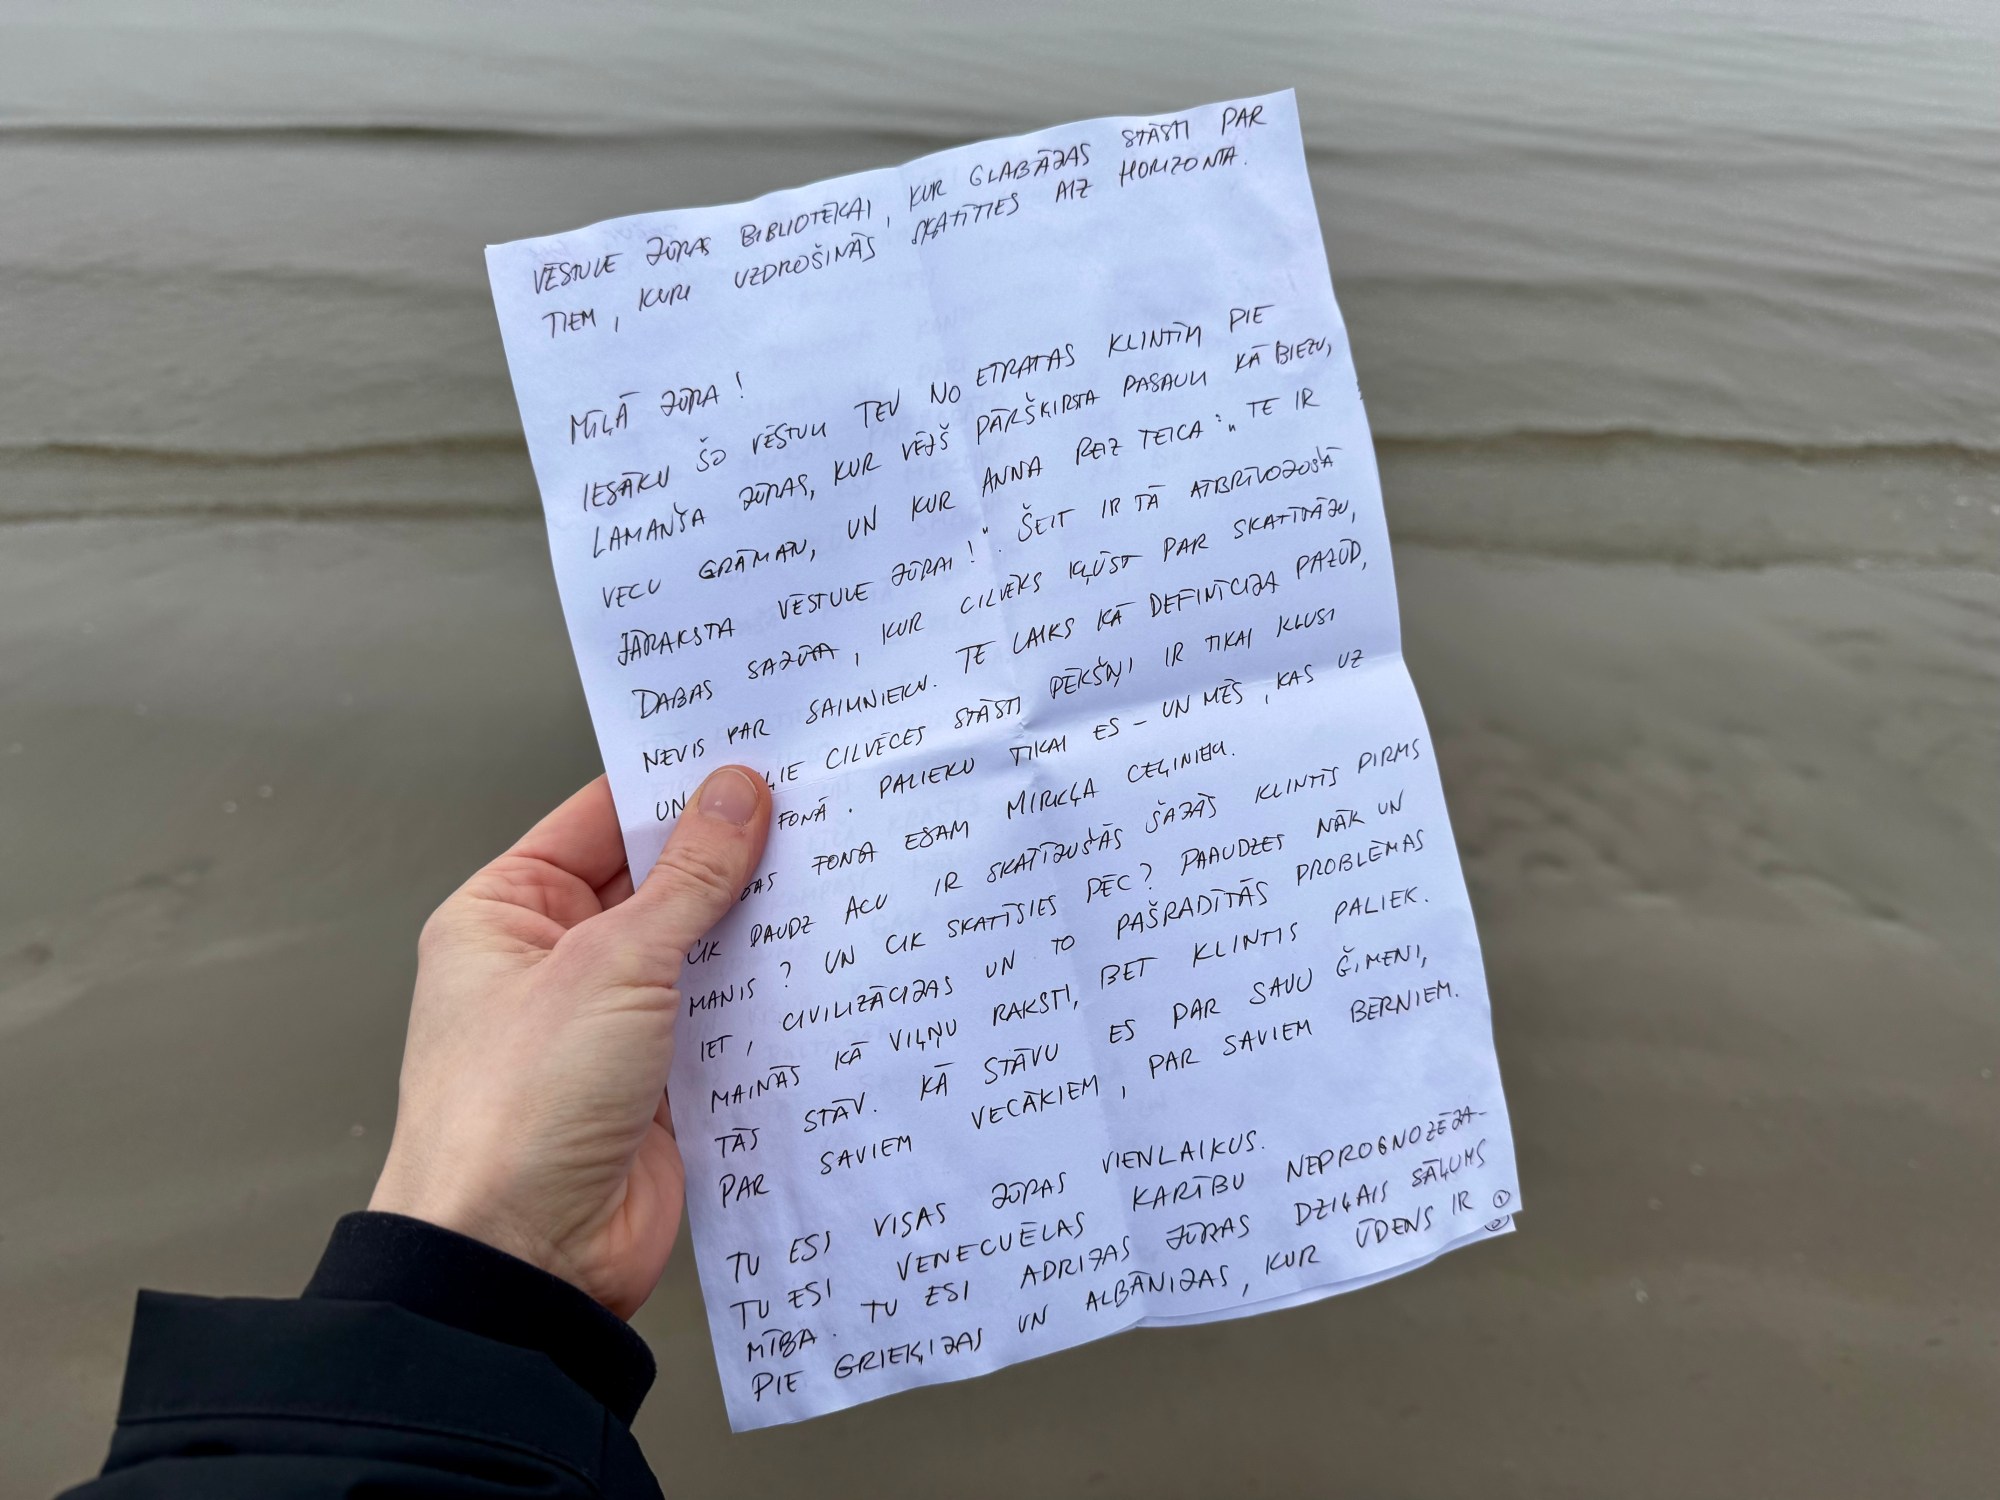 VĒSTULE JŪRAS BIBLIOTĒKAI, KUR GLABĀJAS STĀSTI PAR
TIEM, KURI UZDROŠINĀS SKATĪTIES AIZ HORIZONTA.
MĪĻĀ JŪRA!
IESĀKU ŠO VĒSTULI TEV NO ETRATAS KLINTĪM PIE
LAMANŠA JŪRAS, KUR VĒJŠ PĀRŠĶIRSTA PASAULI KĀ BIEZU,
VECU GRĀMAN, UN KUR ANNA REIZ TEICA: „TE IR
JĀRAKSTA VĒSTULE JŪRAI!". ŠEIT IR TĀ ATBRĪVOJOŠĀ
DABAS SAJŪTA, KUR CILVĒKS KĻŪST PAR SKATĪTĀJU,
NEVIS PAR SAIMNIEKU. TE LAIKS KĀ DEFINĪCIJA PAZŪD,
UN CILVĒCES STĀSTI PĒKŠŅI IR TIKAI KLUSI
FONĀ. PALIEKU TIKAI ES – UN MĒS, KAS UZ
FONA ESAM MIRKĻA CEĻINIEKI.
CIK DAUDZ ACU IR SKATĪJUŠĀS ŠAJĀS KLINTĪS PIRMS
MANIS? UN CIK SKATĪSIES PĒC? PAAUDZES NĀK UN
IET, CIVILIZĀCIJAS UN TO PAŠRADĪTĀS PROBLĒMAS
MAINĀS KĀ VIĻŅU RAKSTI, BET KLINTIS PALIEK.
TĀS STĀV. KĀ STĀVU ES PAR SAVU ĢIMENI,
PAR SAVIEM VECĀKIEM, PAR SAVIEM BĒRNIEM.
TU ESI VISAS JŪRAS VIENLAIKUS.
TU ESI VENECUĒLAS KARĪBU NEPROGNOZĒJA-
MĪBA. TU ESI ADRIJAS JŪRAS DZIĻAIS SĀĻUMS
PIE GRIEĶIJAS UN ALBĀNIJAS, KUR ŪDENS IR ①
②